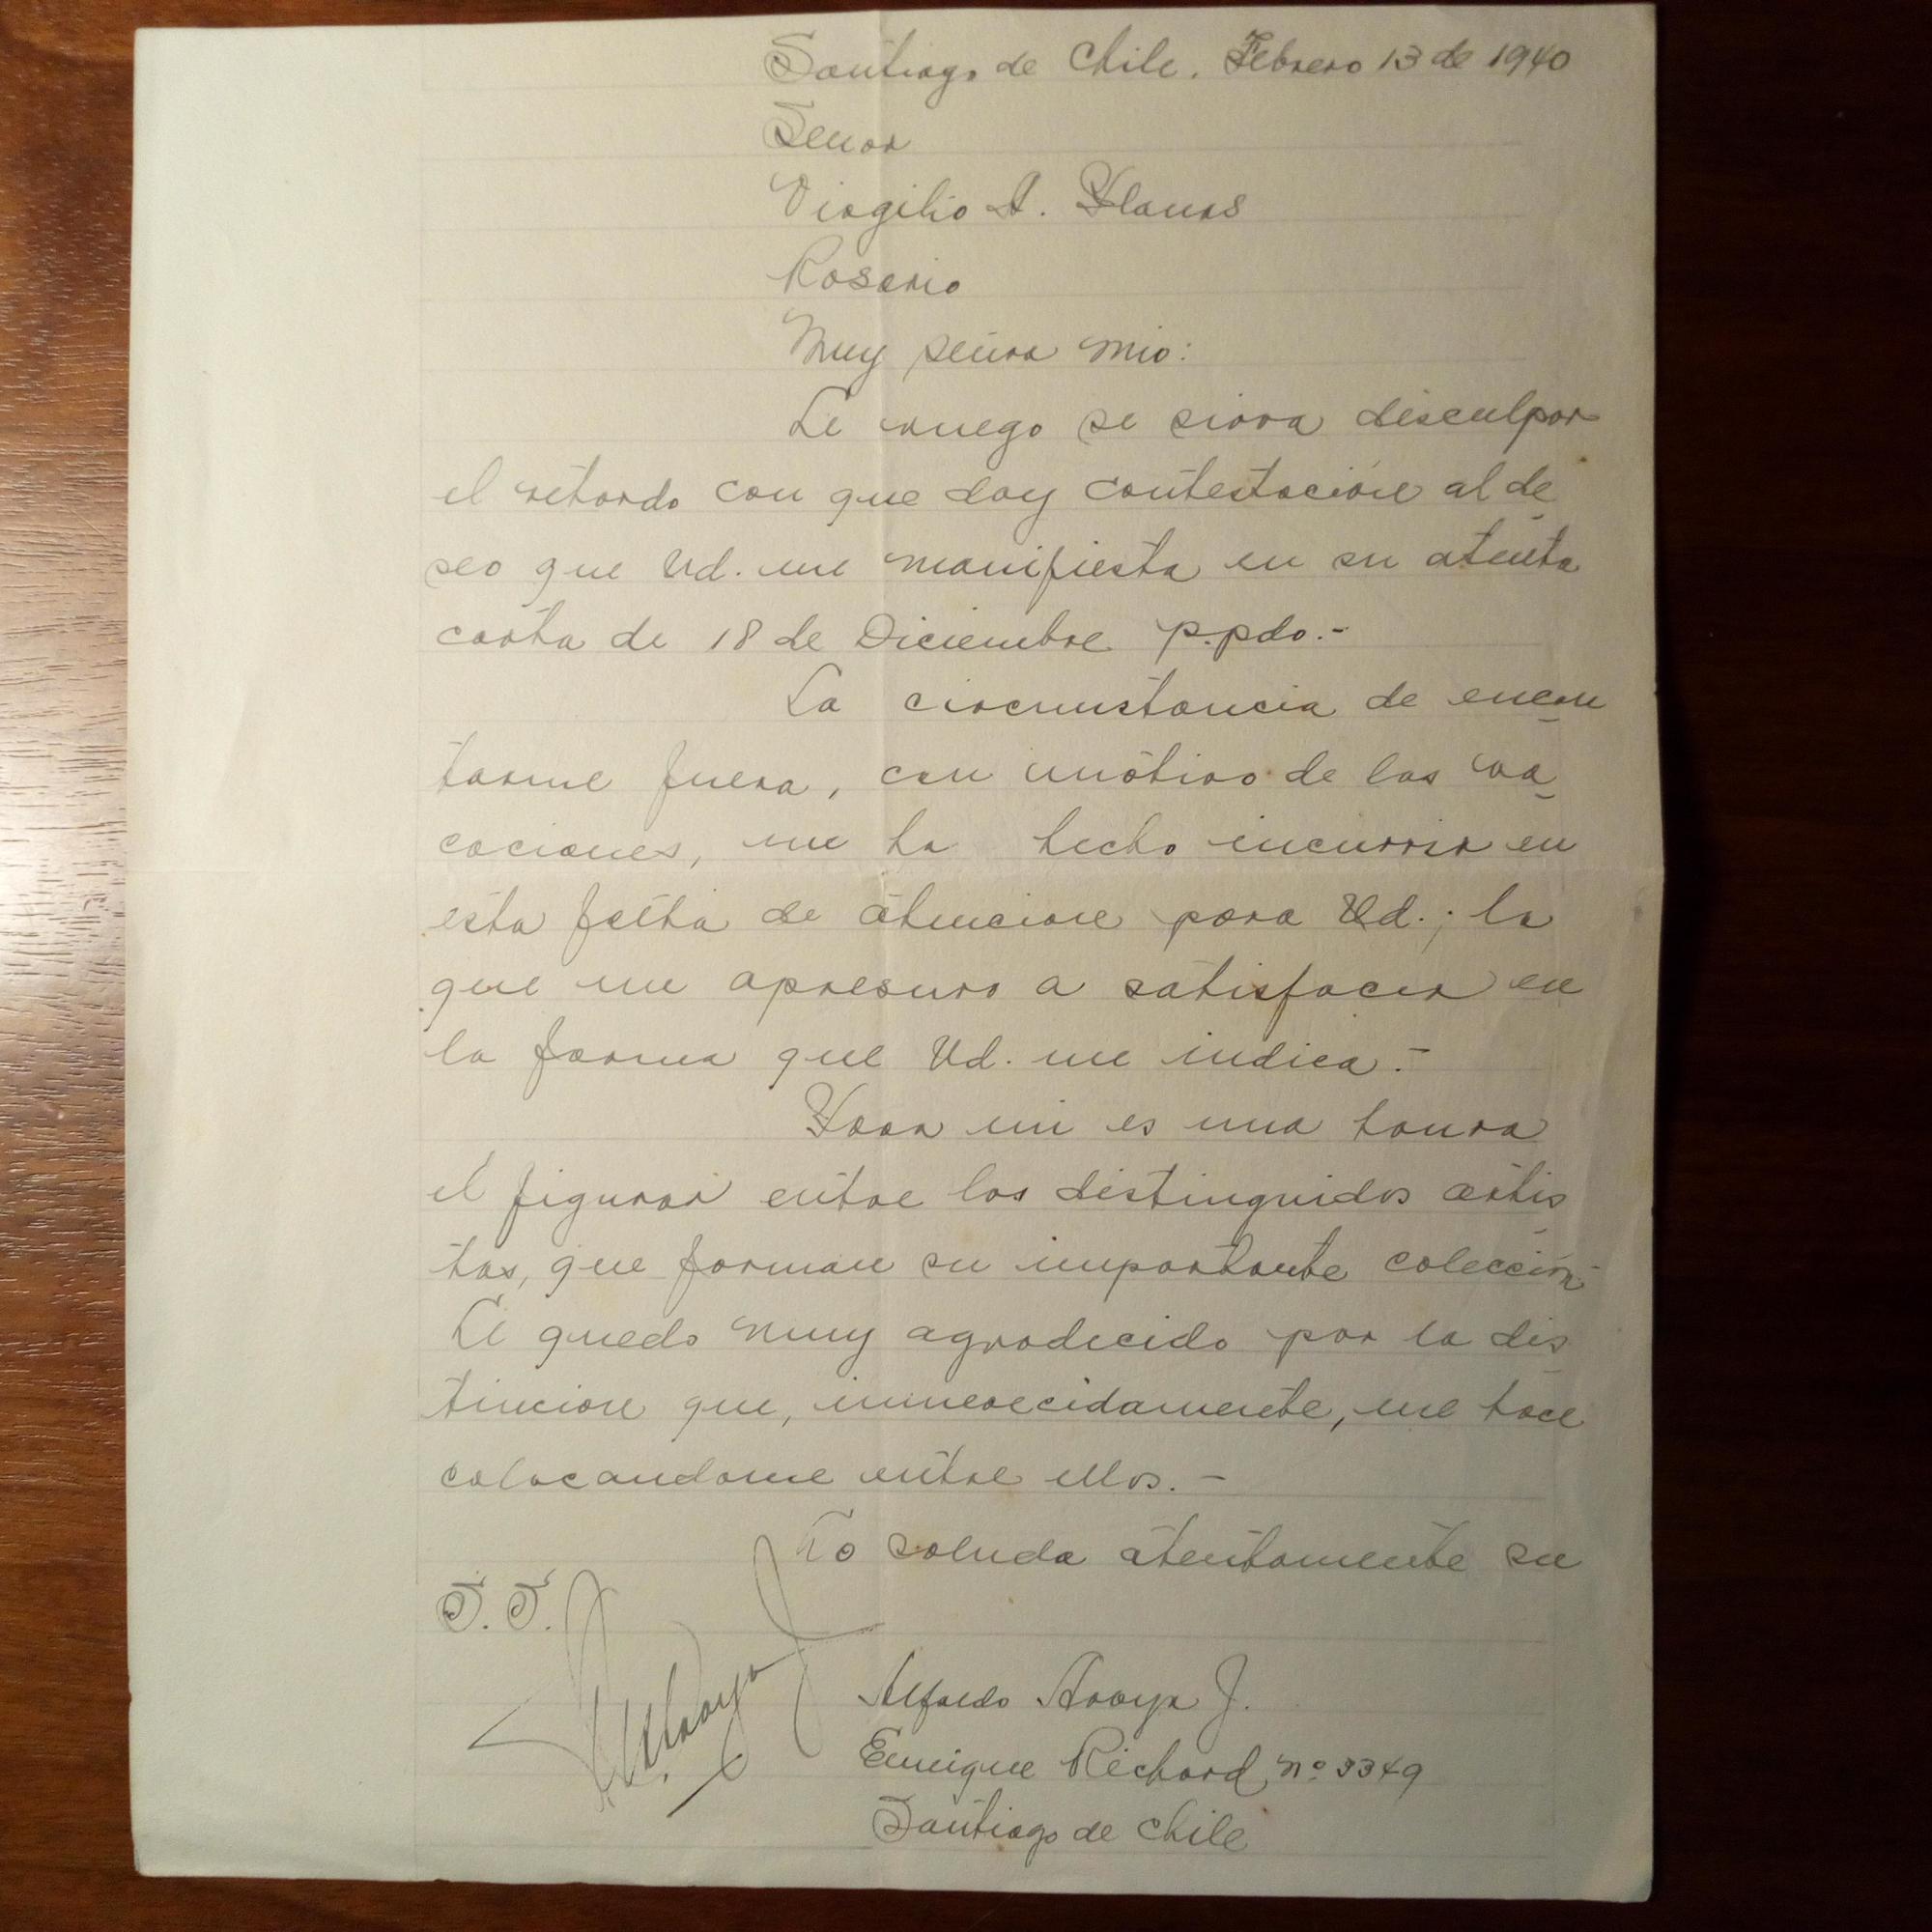 Santiago de Chile. Febrero 13 de 1940
Señor
Virgilio A. Planas
Rosario
Muy señor mio:
Le ruego se sirva disculpar
el retardo con que doy contestación al de
seo que Ud. me manifiesta en su atenta
carta de 18 de Diciembre p.pdo.-
La circunstancia de encon
trarme fuera, con motivo de las va
caciones, me ha hecho incurrir en
esta falta de atencion para Ud.; la
que me apresuro a satisfacer en
la forma que Ud. me indica.-
Para mi es una honra
el figurar entre los distinguidos artis
tas, que forman su importante colección
Le quedo muy agradecido por la dis
tincion que, inmerecidamente, me hace
colocandome entre ellos.-
Lo saluda atentamente su
S. S.
Alfredo Araya J.
Enrique Richard nº 3349
Santiago de Chile